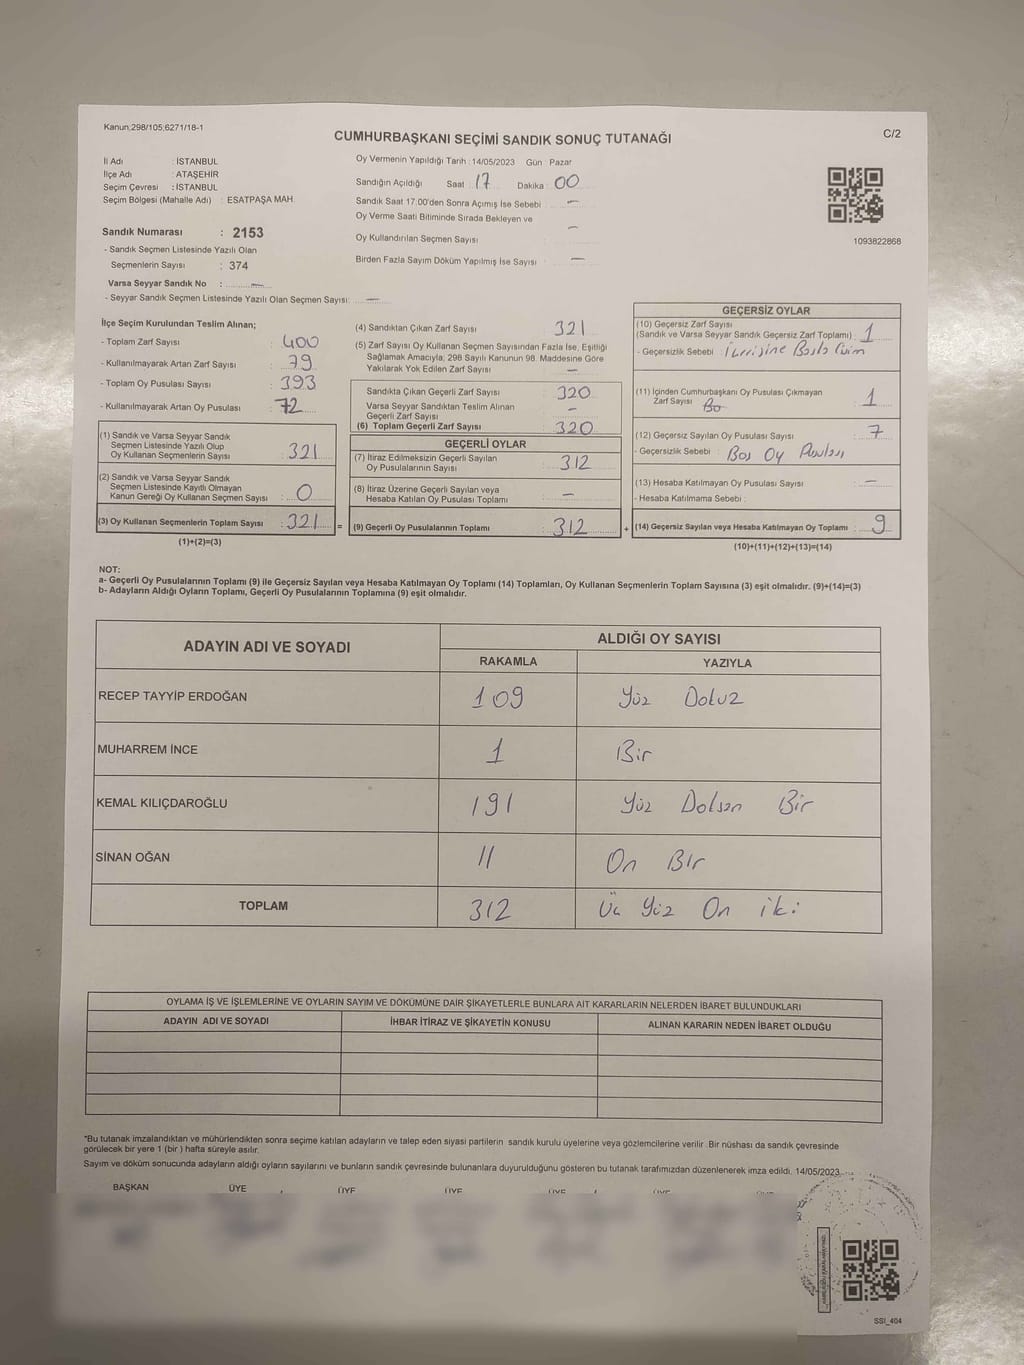 Kanun;298/105;6271/18-1
CUMHURBAŞKANI SEÇİMİ SANDIK SONUÇ TUTANAĞI
C/2
İl Adı : İSTANBUL
İlçe Adı : ATAŞEHİR
Seçim Çevresi : İSTANBUL
Seçim Bölgesi (Mahalle Adı) : ESATPAŞA MAH.
Sandık Numarası : 2153
- Sandık Seçmen Listesinde Yazılı Olan
Seçmenlerin Sayısı : 374
Varsa Seyyar Sandık No : —
- Seyyar Sandık Seçmen Listesinde Yazılı Olan Seçmen Sayısı: —
Oy Vermenin Yapıldığı Tarih :14/05/2023 Gün : Pazar
Sandığın Açıldığı Saat : 17 Dakika : 00
Sandık Saat 17.00'den Sonra Açımış İse Sebebi : —
Oy Verme Saati Bitiminde Sırada Bekleyen ve
Oy Kullandırılan Seçmen Sayısı : —
Birden Fazla Sayım Döküm Yapılmış İse Sayısı : —
1093822868
İlçe Seçim Kurulundan Teslim Alınan;
- Toplam Zarf Sayısı : 400
- Kullanılmayarak Artan Zarf Sayısı : 79
- Toplam Oy Pusulası Sayısı : 393
- Kullanılmayarak Artan Oy Pusulası : 72
(1) Sandık ve Varsa Seyyar Sandık
Seçmen Listesinde Yazılı Olup
Oy Kullanan Seçmenlerin Sayısı : 321
(2) Sandık ve Varsa Seyyar Sandık
Seçmen Listesinde Kayıtlı Olmayan
Kanun Gereği Oy Kullanan Seçmen Sayısı : 0
(3) Oy Kullanan Seçmenlerin Toplam Sayısı : 321 =
(1)+(2)=(3)
(4) Sandıktan Çıkan Zarf Sayısı : 321
(5) Zarf Sayısı Oy Kullanan Seçmen Sayısından Fazla İse, Eşitliği
Sağlamak Amacıyla; 298 Sayılı Kanunun 98. Maddesine Göre
Yakılarak Yok Edilen Zarf Sayısı : —
Sandıkta Çıkan Geçerli Zarf Sayısı : 320
Varsa Seyyar Sandıktan Teslim Alınan
Geçerli Zarf Sayısı : —
(6) Toplam Geçerli Zarf Sayısı : 320
GEÇERLİ OYLAR
(7) İtiraz Edilmeksizin Geçerli Sayılan
Oy Pusulalarının Sayısı : 312
(8) İtiraz Üzerine Geçerli Sayılan veya
Hesaba Katılan Oy Pusulası Toplamı : —
(9) Geçerli Oy Pusulalarının Toplamı : 312 +
GEÇERSİZ OYLAR
(10) Geçersiz Zarf Sayısı
(Sandık ve Varsa Seyyar Sandık Geçersiz Zarf Toplamı) : 1
- Geçersizlik Sebebi :
(11) İçinden Cumhurbaşkanı Oy Pusulası Çıkmayan
Zarf Sayısı : 1
(12) Geçersiz Sayılan Oy Pusulası Sayısı : 7
- Geçersizlik Sebebi : Boş Oy Pusulası
(13) Hesaba Katılmayan Oy Pusulası Sayısı : —
- Hesaba Katılmama Sebebi :
(14) Geçersiz Sayılan veya Hesaba Katılmayan Oy Toplamı : 9
(10)+(11)+(12)+(13)=(14)
NOT:
a- Geçerli Oy Pusulalarının Toplamı (9) ile Geçersiz Sayılan veya Hesaba Katılmayan Oy Toplamı (14) Toplamları, Oy Kullanan Seçmenlerin Toplam Sayısına (3) eşit olmalıdır. (9)+(14)=(3)
b- Adayların Aldığı Oyların Toplamı, Geçerli Oy Pusulalarının Toplamına (9) eşit olmalıdır.
ADAYIN ADI VE SOYADI
ALDIĞI OY SAYISI
RAKAMLA YAZIYLA
RECEP TAYYİP ERDOĞAN 109 Yüz Dokuz
MUHARREM İNCE 1 Bir
KEMAL KILIÇDAROĞLU 191 Yüz Doksan Bir
SİNAN OĞAN 11 On Bir
TOPLAM 312 Üç Yüz On iki
OYLAMA İŞ VE İŞLEMLERİNE VE OYLARIN SAYIM VE DÖKÜMÜNE DAİR ŞİKAYETLERLE BUNLARA AİT KARARLARIN NELERDEN İBARET BULUNDUKLARI
ADAYIN ADI VE SOYADI İHBAR İTİRAZ VE ŞİKAYETİN KONUSU ALINAN KARARIN NEDEN İBARET OLDUĞU
*Bu tutanak imzalandıktan ve mühürlendikten sonra seçime katılan adayların ve talep eden siyasi partilerin sandık kurulu üyelerine veya gözlemcilerine verilir .Bir nüshası da sandık çevresinde
görülecek bir yere 1 (bir ) hafta süreyle asılır.
Sayım ve döküm sonucunda adayların aldığı oyların sayılarını ve bunların sandık çevresinde bulunanlara duyurulduğunu gösteren bu tutanak tarafımızdan düzenlenerek imza edildi. 14/05/2023
BAŞKAN ÜYE ÜYE ÜYE ÜYE ÜYE ÜYE
SSI_404